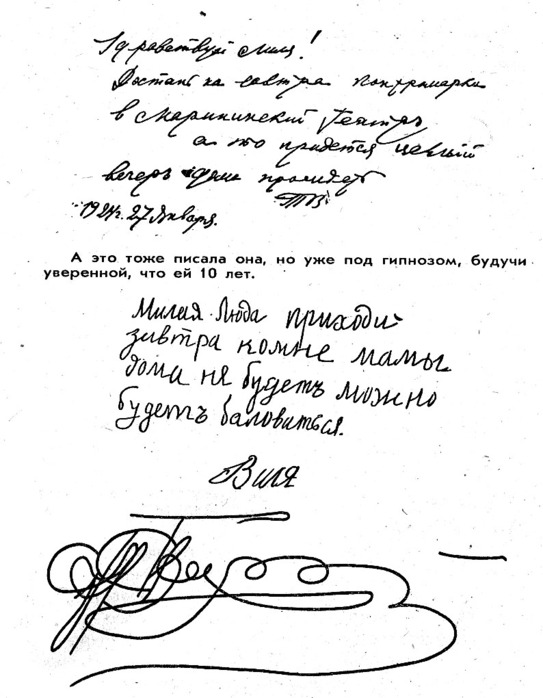 Здравствуй Миля!
Достань на завтра контрамарки
в Мариинский Театръ,
а то придется целый
вечеръ дома просидеть
ТВ.
1924г. 27 Января.
А это тоже писала она, но уже под гипнозом, будучи
уверенной, что ей 10 лет.
Милая Люда приходи
завтра комне мамы
дома не будетъ можно
будетъ баловиться.
Виля